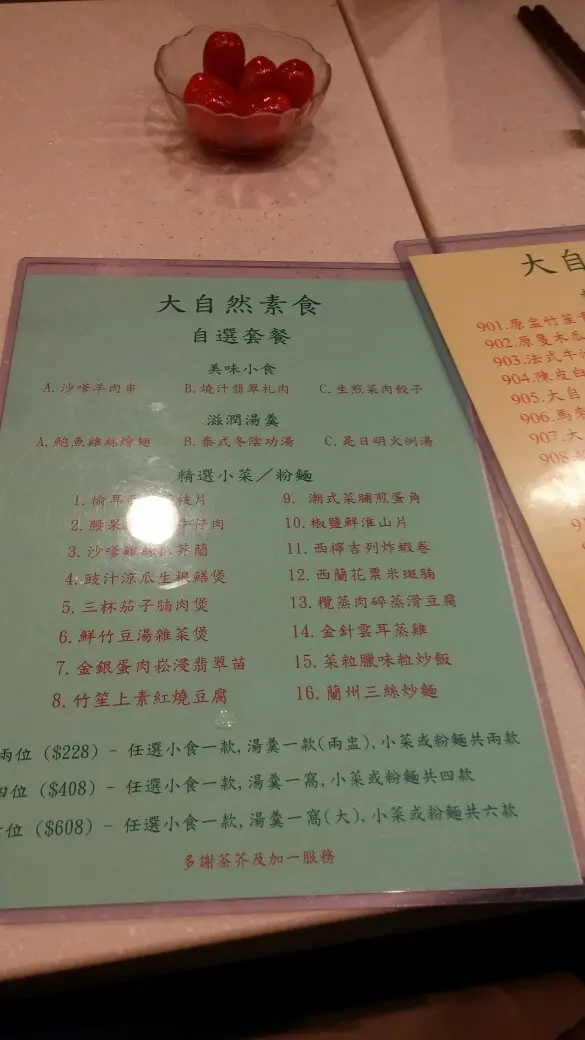 大自然素食
自選套餐
美味小食
A. 沙嗲羊肉串 B. 燒汁翡翠札肉 C. 生煎菜肉餃子
滋潤湯羹
A. 鮑魚雞絲燴翅 B. 泰式冬陰功湯 C. 是日明火例湯
精選小菜／粉麵
1. 榆耳 片
2. 腰果 牛仔肉
3. 沙嗲雞絲扒芥蘭
4. 豉汁涼瓜生根鱔煲
5. 三杯茄子腩肉煲
6. 鮮竹豆湯雜菜煲
7. 金銀蛋肉崧浸翡翠苗
8. 竹笙上素紅燒豆腐
9. 潮式菜脯煎蛋角
10. 椒鹽鮮淮山片
11. 西檸吉列炸蝦卷
12. 西蘭花粟米斑腩
13. 欖菜肉碎蒸滑豆腐
14. 金針雲耳蒸雞
15. 菜粒臘味粒炒飯
16. 蘭州三絲炒麵
兩位 ($228) - 任選小食一款, 湯羹一款(兩盅), 小菜或粉麵共兩款
四位 ($408) - 任選小食一款, 湯羹一窩, 小菜或粉麵共四款
位 ($608) - 任選小食一款, 湯羹一窩(大), 小菜或粉麵共六款
多謝茶芥及加一服務
大自
901.原盅竹笙
902.原隻木瓜
903.法式牛
904.陳皮白
905.大自
906.馬
907.大
908